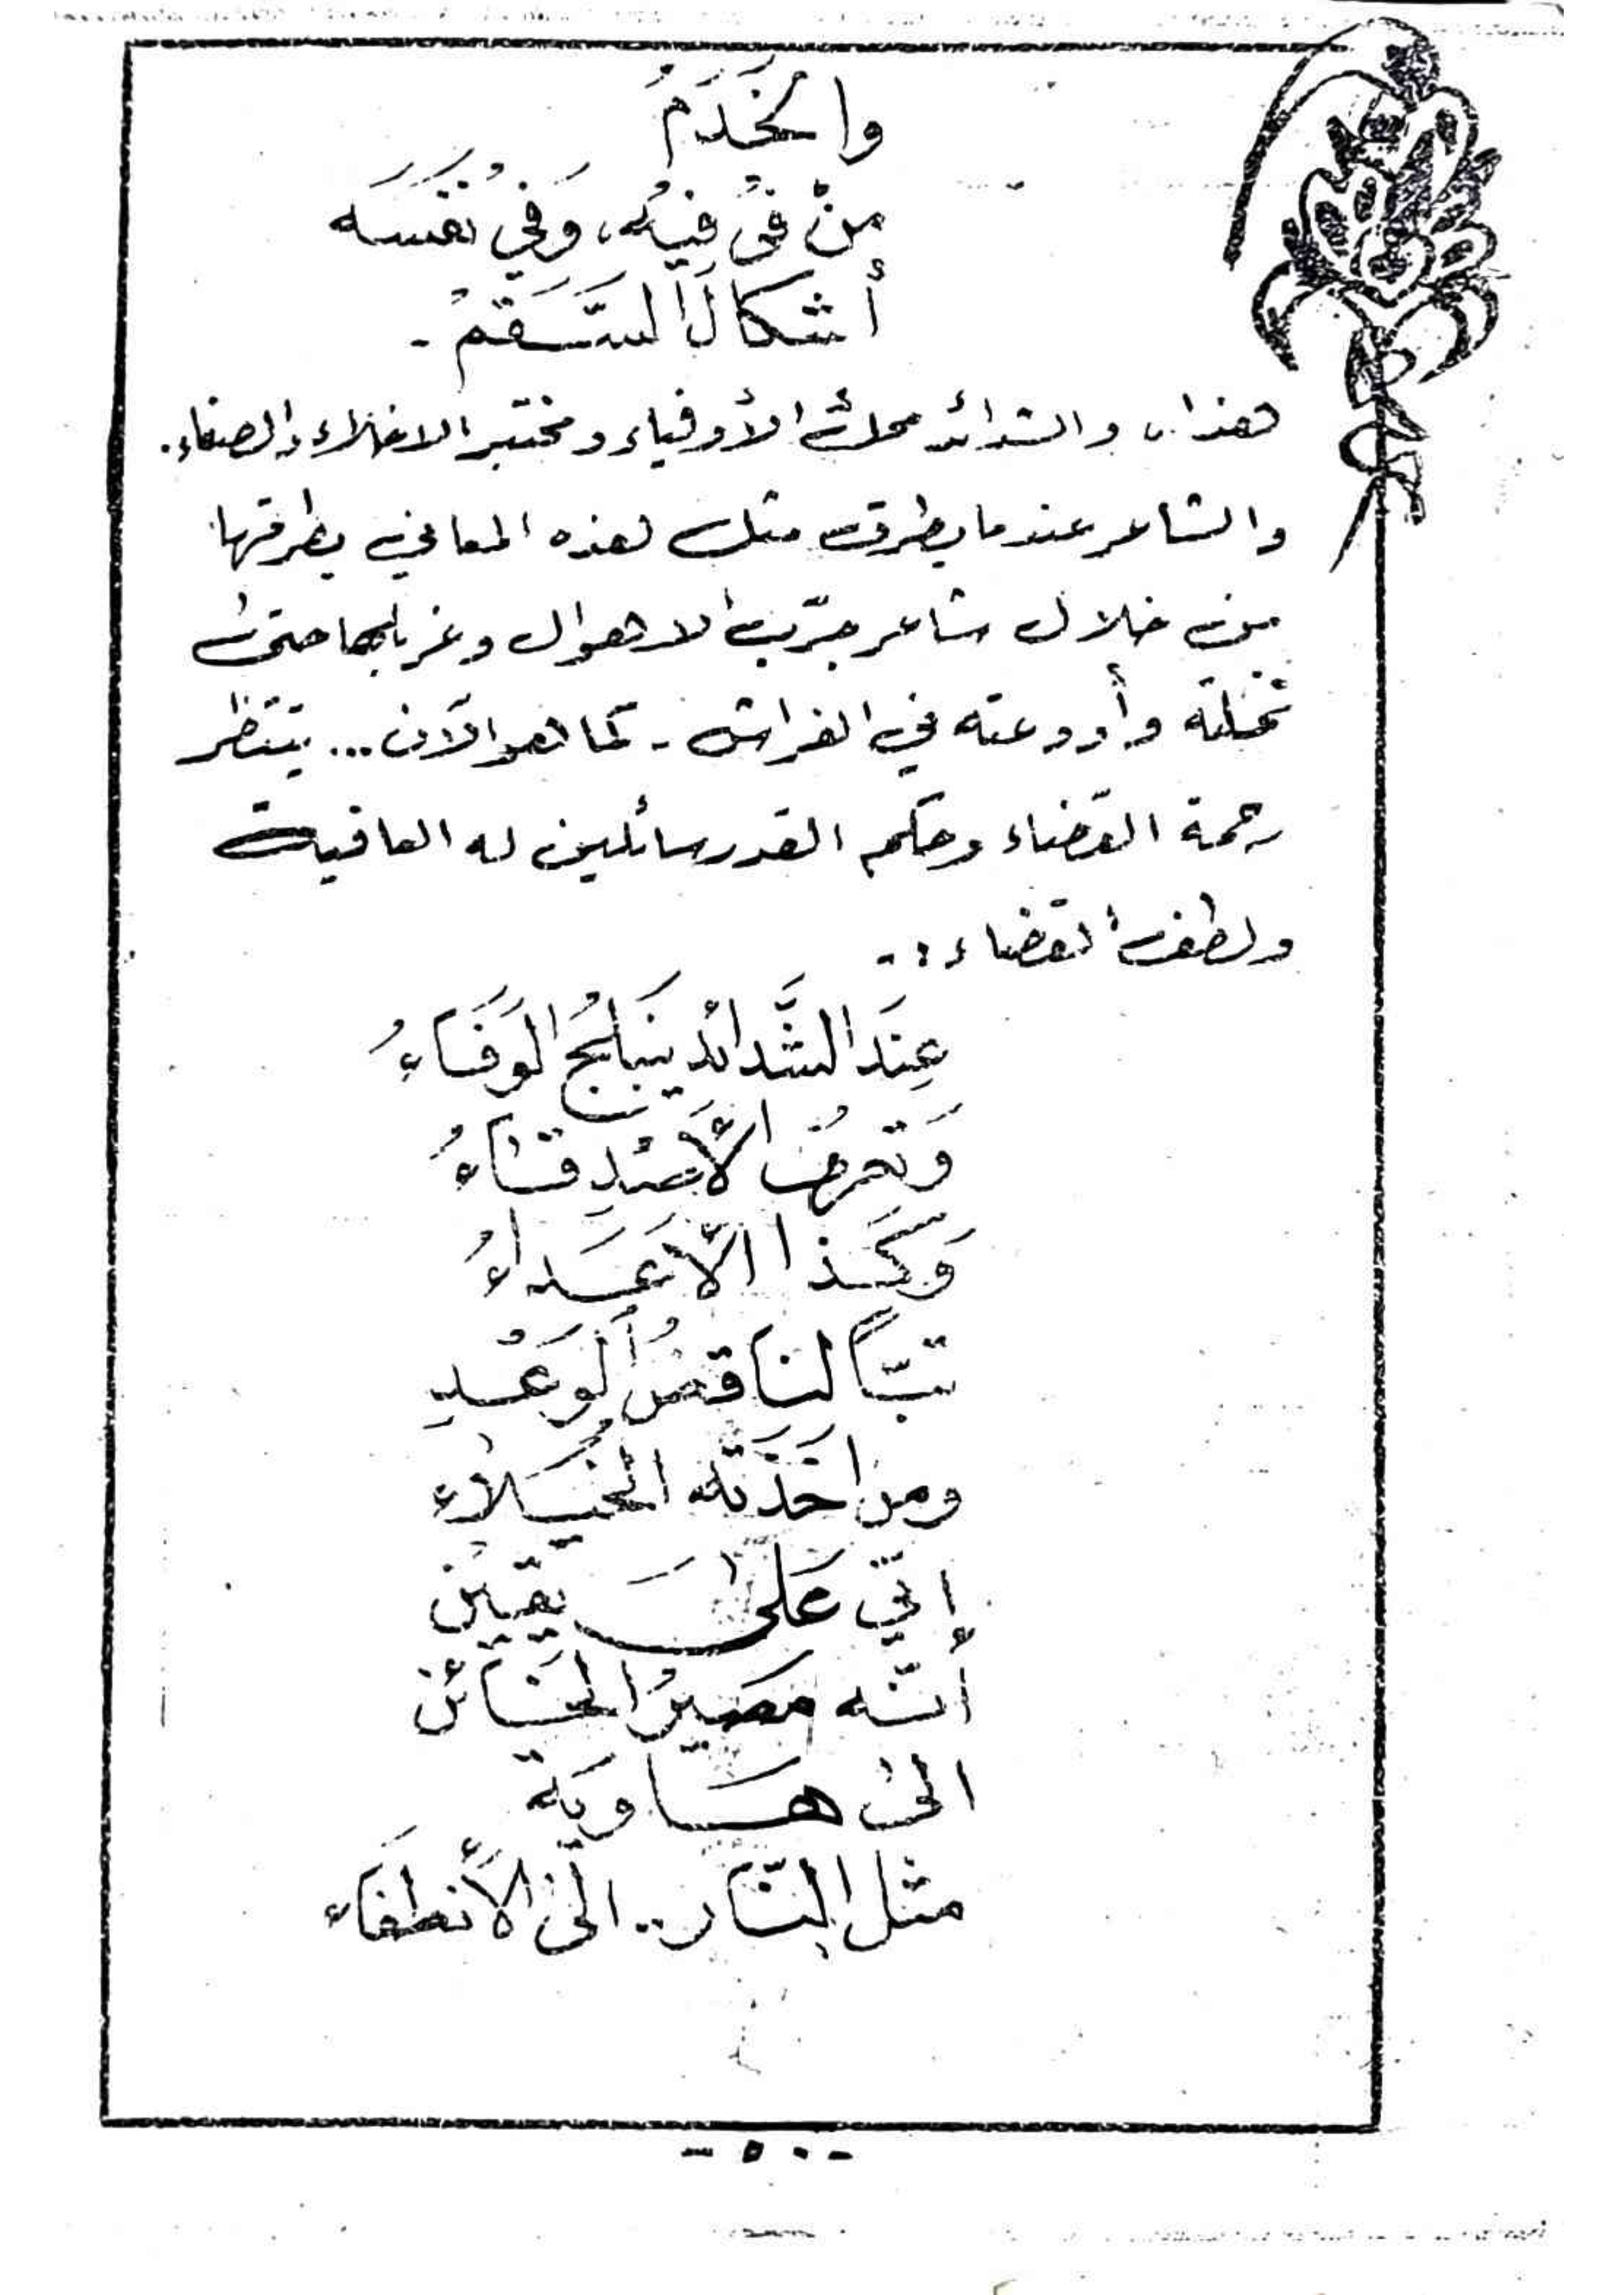 والخَدَمُ
مِنْ في فِيهُ، وَفي نفسَه
أشكالُ السَّقَمْ -
هذا، والشدائد محك الأوفياء ومختبر الاخلاء والصفاء.
والشاعر عندما يطرق مثل هذه المعاني يطرقها
من خلال شاعر جرّب الاهوال وغربلها حتى
نخلته وأودعته في الفراش - كما هو الآن ... ينتظر
رحمة القضاء وحكم القدر سائلين له العافية
ولطف القضاء :-
عِندَ الشَّدائد ينبَلجُ الوَفَاءُ
وَتعرفُ الأصدِقَاءُ
وَكَذا الأَعَداءُ
تبّاً لناقضُ الوَعْدِ
ومن اخَذَته الخُيَلاء
إنّي عَلىَ يقيِن
أنّه مصيرُ الخَائن
الىٰ هَاويَة
مثل النّار.. الىٰ الأنطفَاء
- ٥٠ -